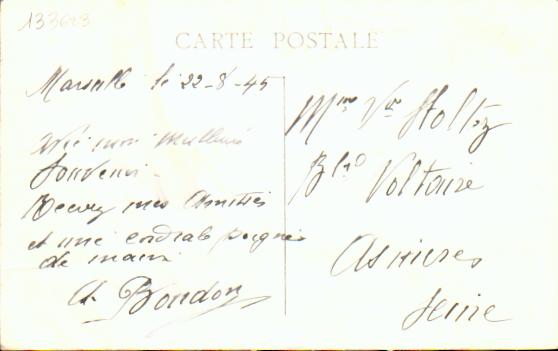 133623
CARTE POSTALE
Marseille le 22-8-45
Avec mon meilleur
Souvenir.
Recevez mes Amitiés
et une cordiale poignée
de main
A. Bondon
Mme Vve Stoltz
Bld Voltaire
Asnieres
Seine